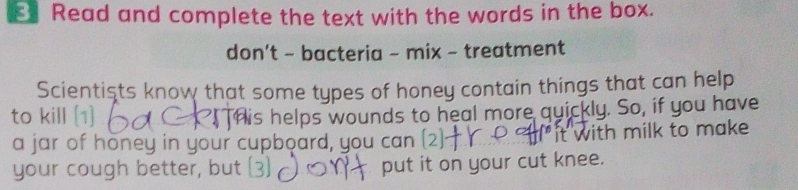 3 Read and complete the text with the words in the box.
don't - bacteria - mix - treatment
Scientists know that some types of honey contain things that can help
to kill (1) bacteria This helps wounds to heal more quickly. So, if you have
a jar of honey in your cupboard, you can (2) treatment it with milk to make
your cough better, but (3) don't put it on your cut knee.